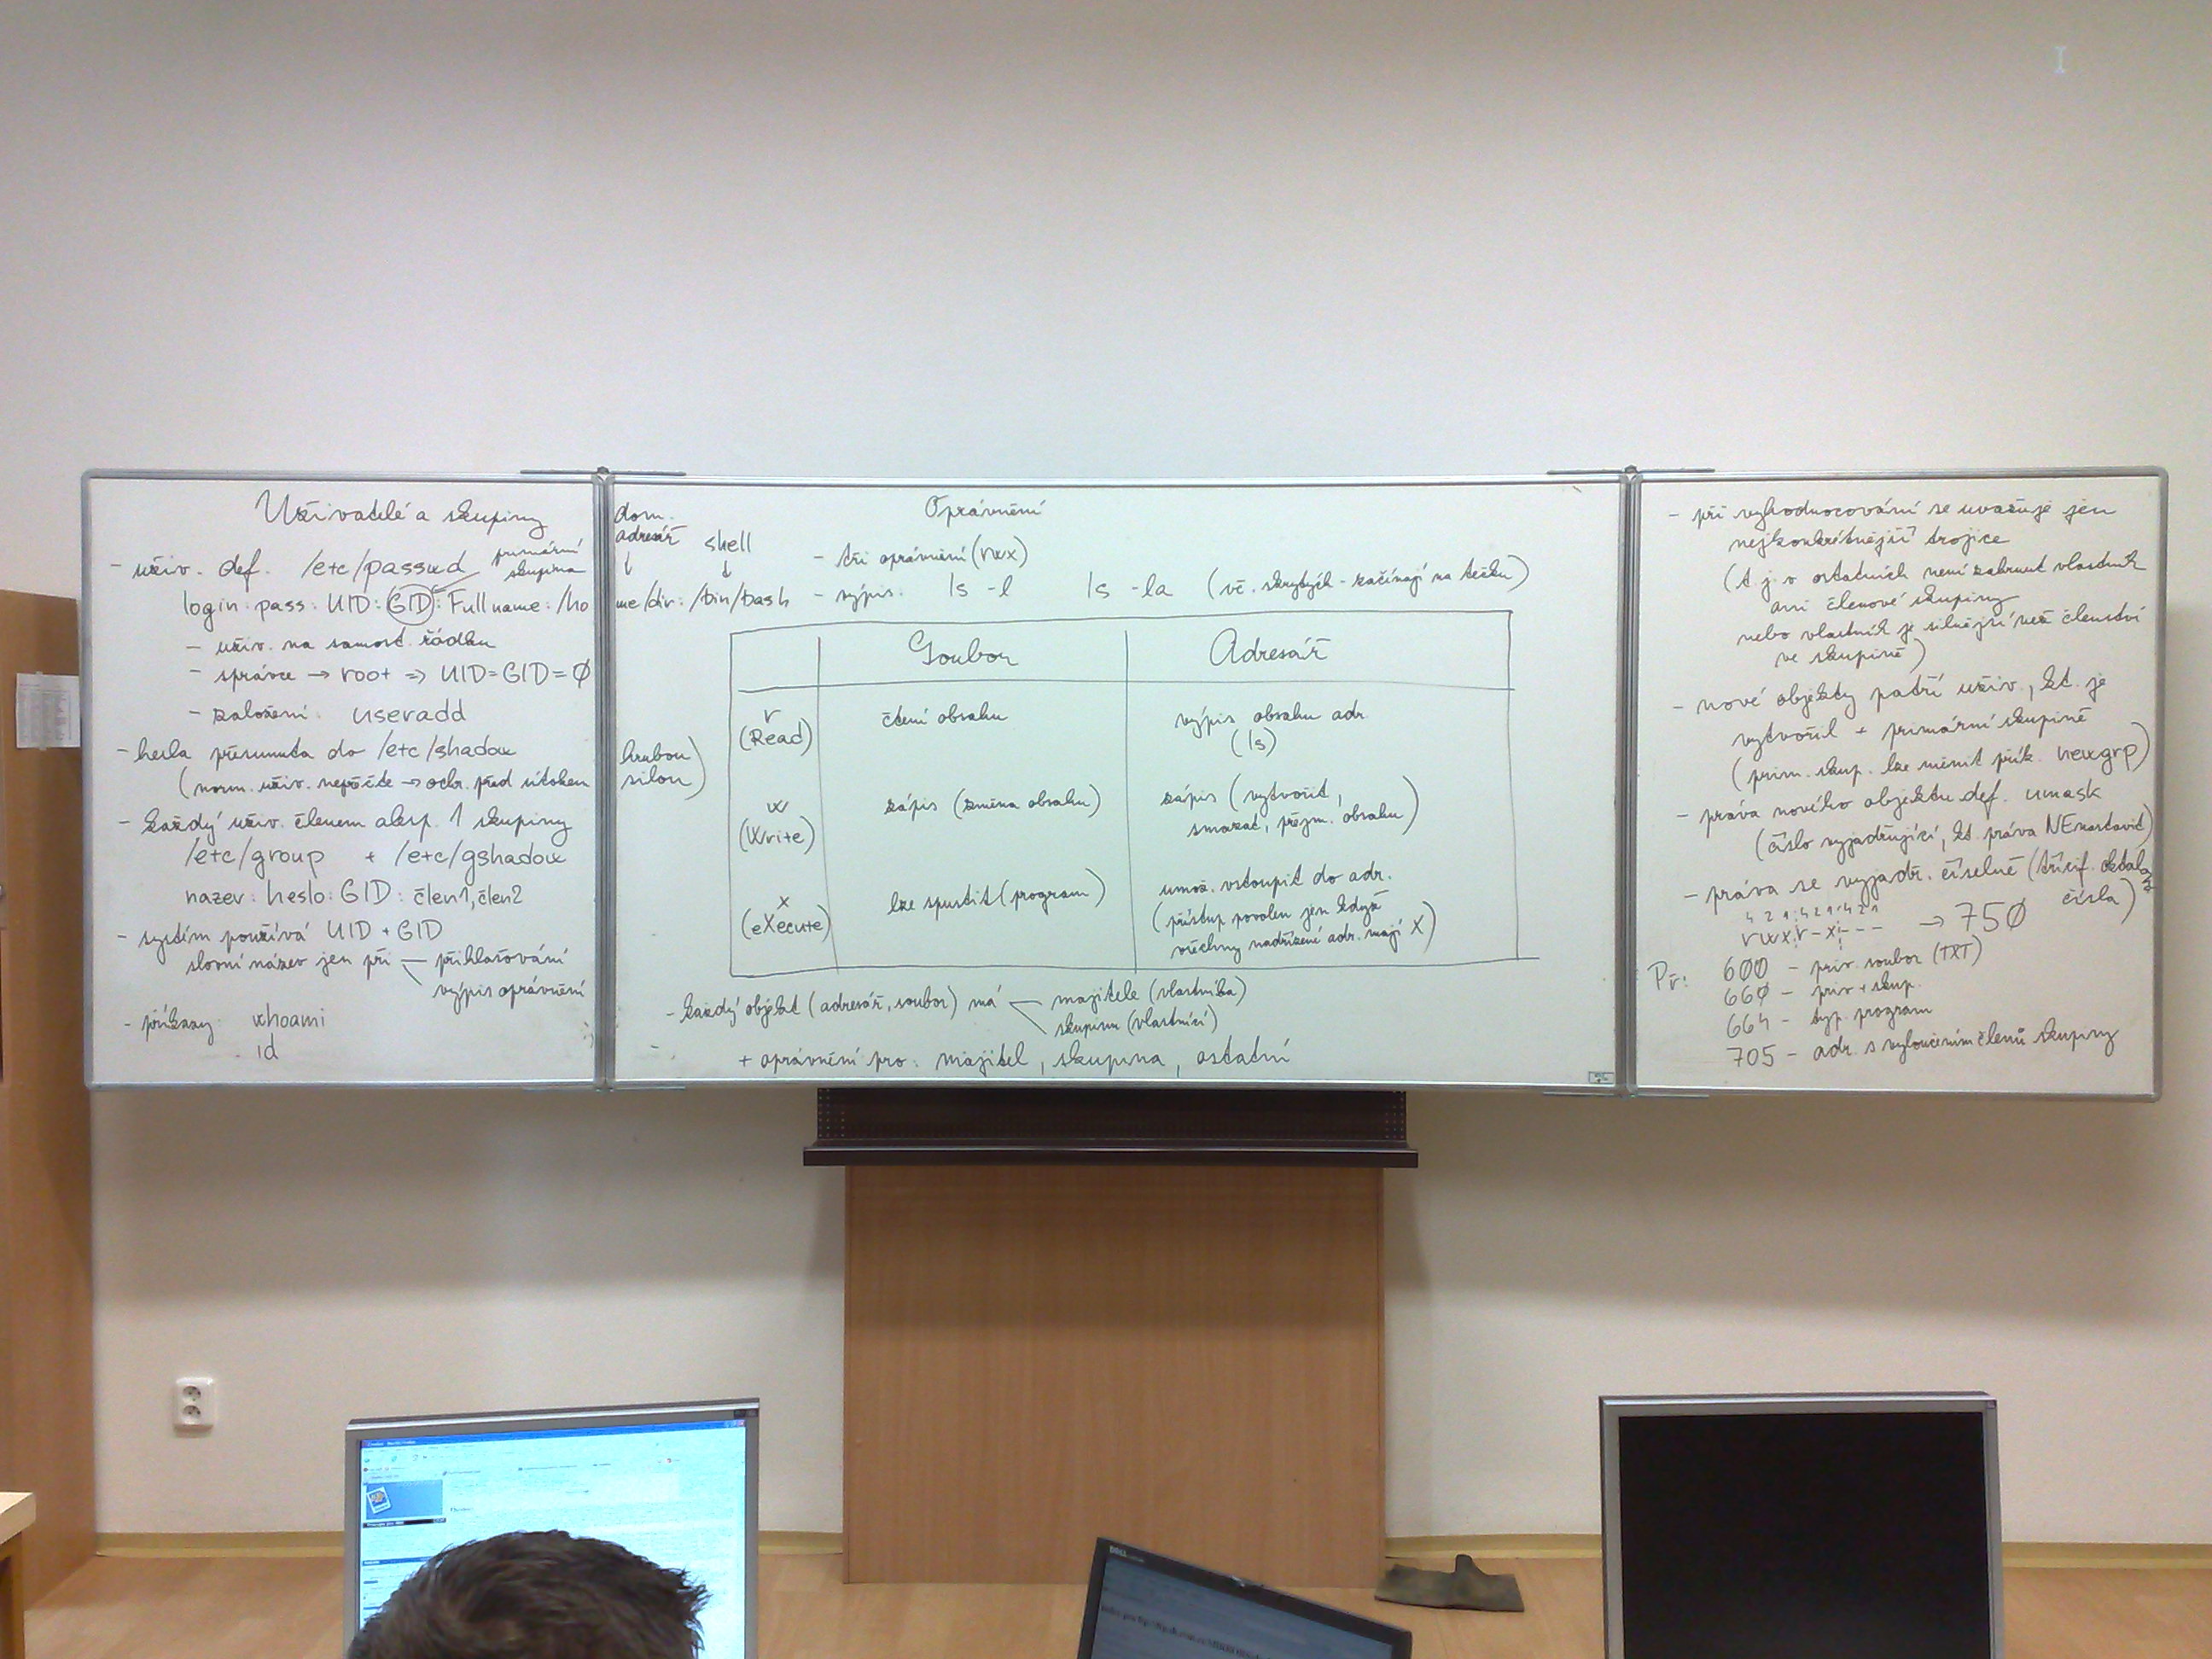 Uživatelé a skupiny
- uživ. def. /etc/passwd
primární
skupina
dom.
adresář
shell
login: pass: UID: GID: Full name: /home/dir: /bin/bash
- uživ. na samost. řádku
- správce → root => UID=GID=0
- založení: useradd
- hesla přesunuta do /etc/shadow
(norm. uživ. nepřečte → ochr. před útokem hrubou silou)
- každý uživ. členem alesp. 1 skupiny
/etc/group + /etc/gshadow
nazev: heslo: GID: člen1, člen2
- systém používá UID + GID
slovní název jen při — přihlašování
výpis oprávnění
- příkazy whoami
id
Oprávnění
- tři oprávnění (rwx)
- výpis: ls -l ls -la (vč. skrytých - začínají na tečku)
Soubor Adresář
r
(Read)
čtení obsahu
výpis obsahu adr.
(ls)
w
(Write)
zápis (změna obsahu)
zápis (vytvořit,
smazat, přejm. obsahu)
x
(eXecute)
lze spustit (program)
umož. vstoupit do adr.
(přístup povolen jen když
všechny nadřízené adr. mají X)
- každý objekt (adresář, soubor) má — majitele (vlastníka)
skupinu (vlastnící)
+ oprávnění pro: majitel, skupina, ostatní
- při vyhodnocování se uvažuje jen
nejkonkrétnější trojice
(t.j. v ostatních není zahrnut vlastník
ani členové skupiny
nebo vlastník je silnější než členství
ve skupině)
- nové objekty patří uživ., kt. je
vytvořil + primární skupině
(prim. skup. lze měnit přík. newgrp)
- práva nového objektu def. umask
(číslo vyjadřující, kt. práva NEnastavit)
- práva se vyjadř. číselně (třícif. oktal.
čísla)
4 2 1 4 2 1 4 2 1
rwxr-x--- → 750
Př: 600 - priv. soubor (TXT)
660 - priv + skup.
664 - typ. program
705 - adr. s vyloučením členů skupiny
DELL